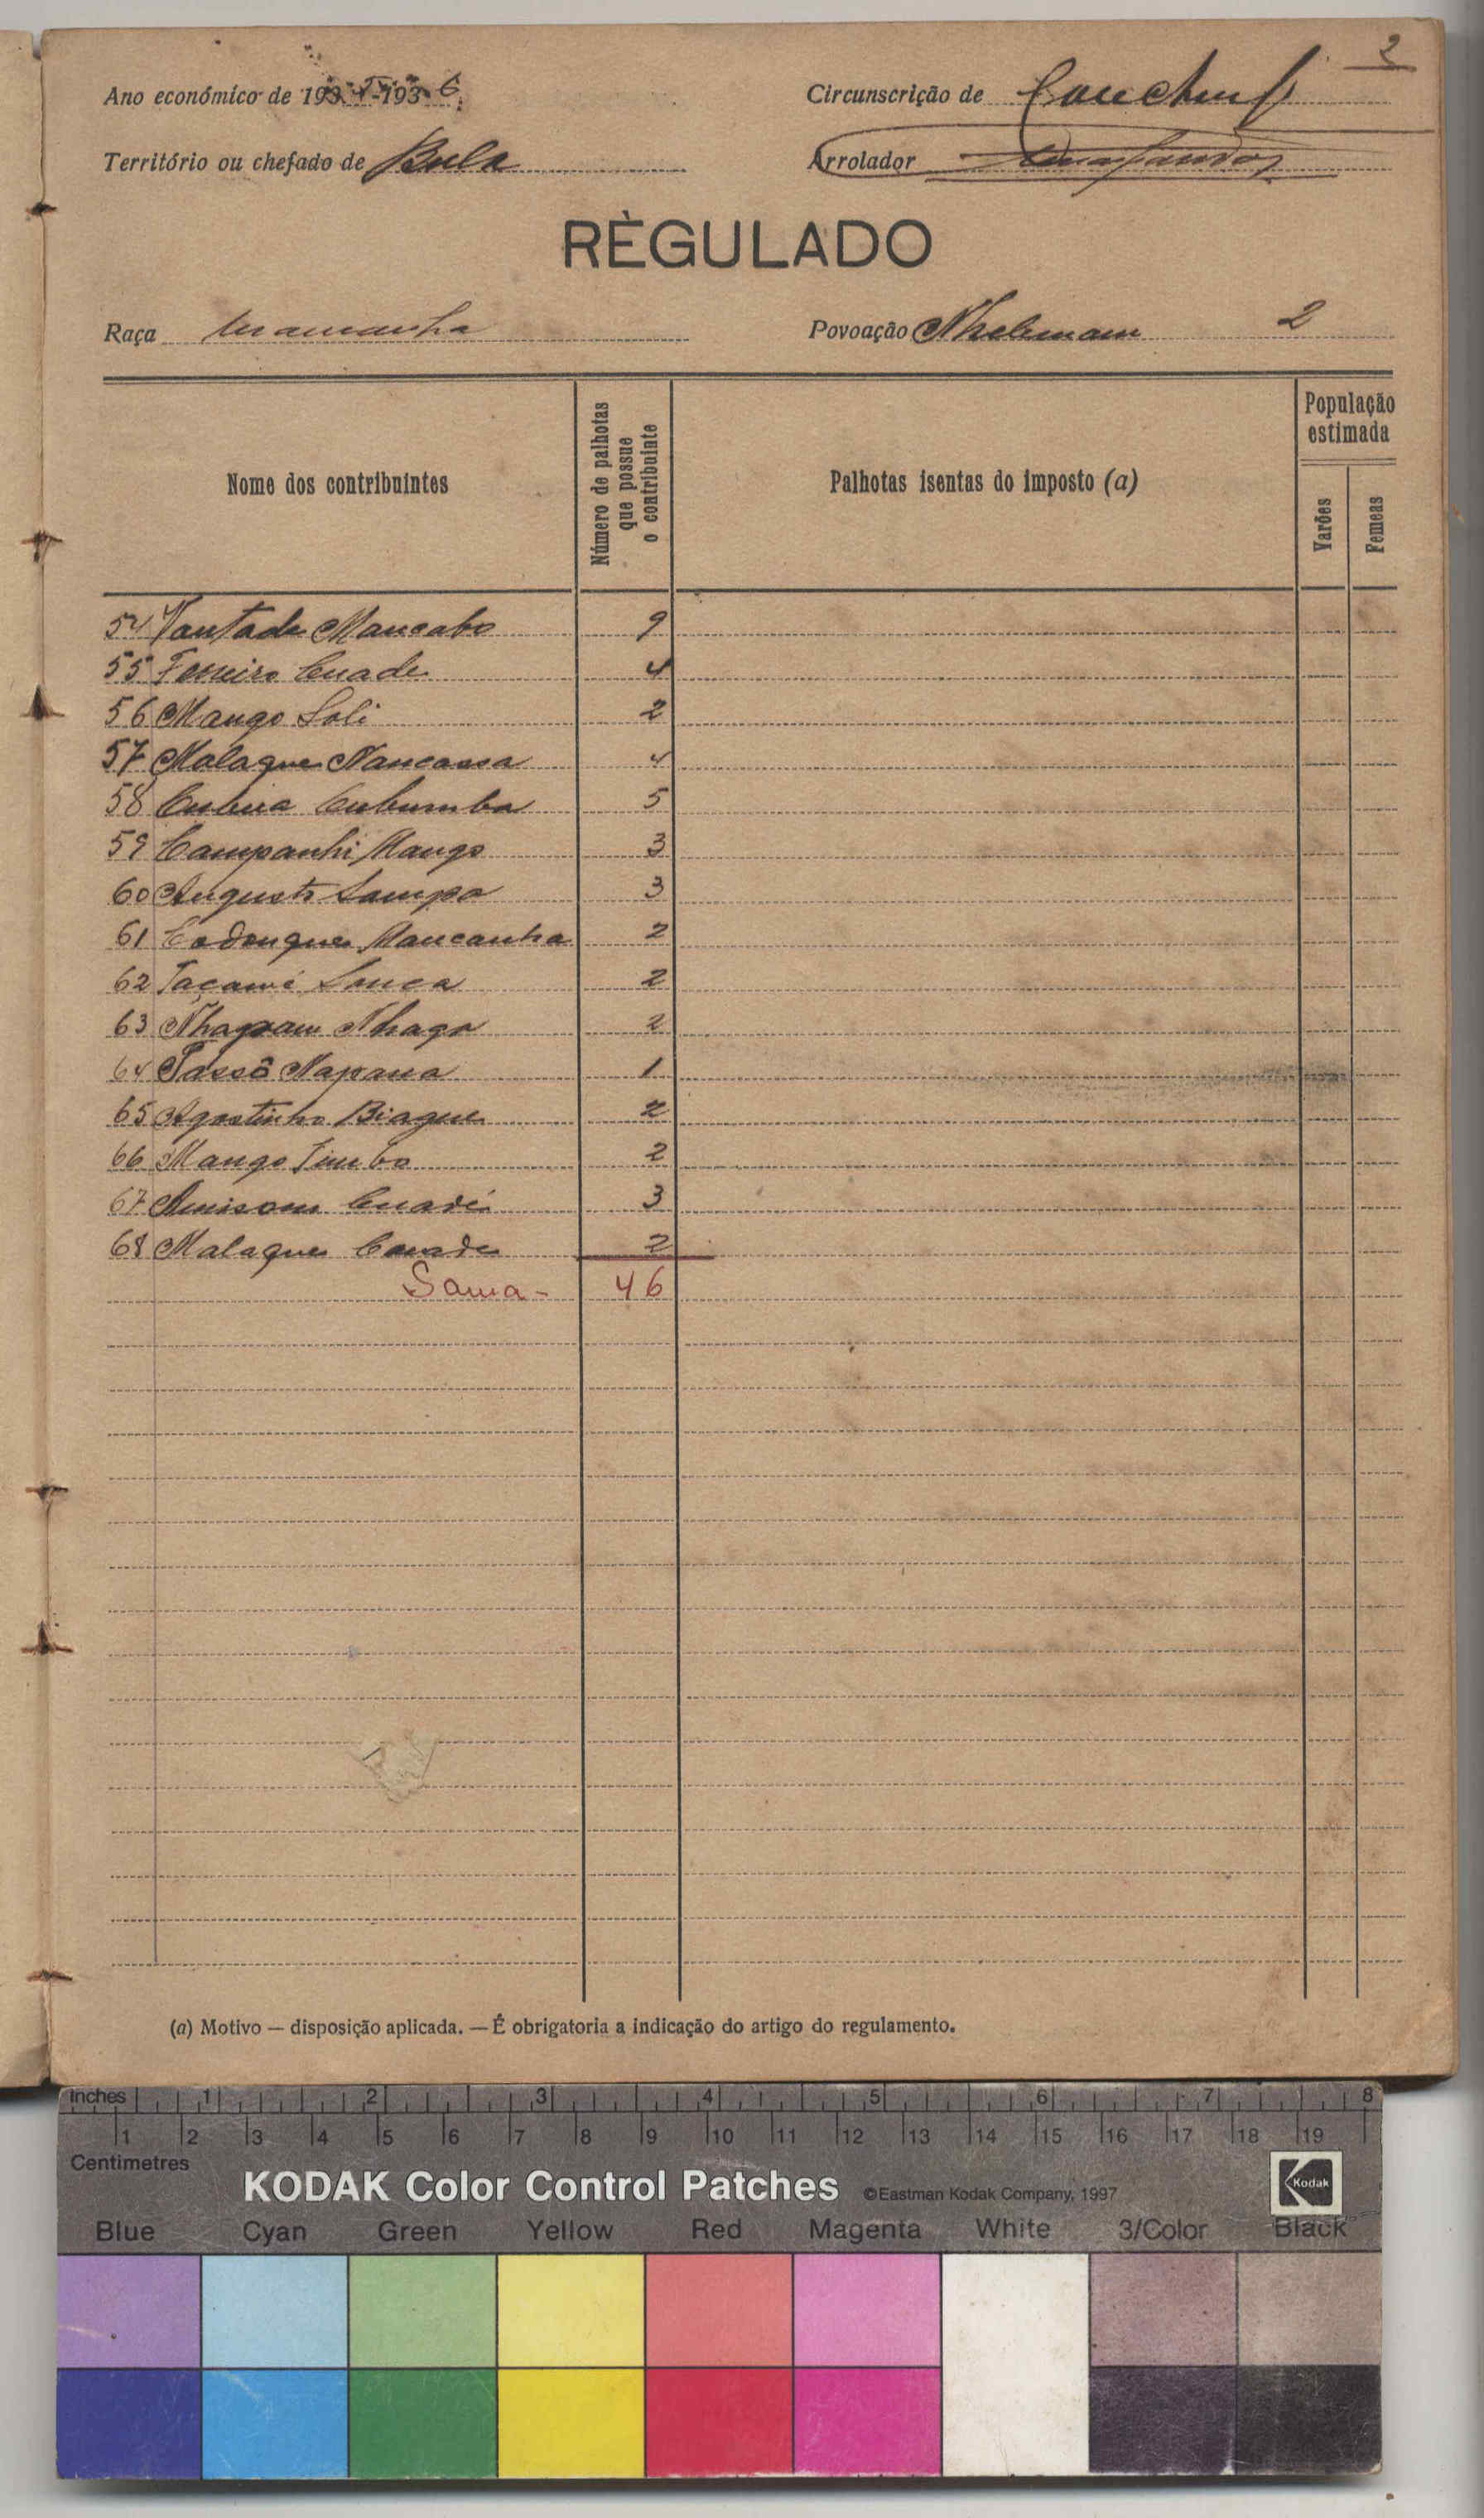 2
Ano económico de 1935-1936 Circunscrição de
Território ou chefado de Bula Arrolador
RÈGULADO
Raça mancanha Povoação 2
Nome dos contribuintes Número de palhotas que possue o contribuinte Palhotas isentas do imposto (a) População estimada Varões Femeas
54 Mancabo 9
55 Ferreiro Cuade 4
56 Mango Soli 2
57 Malaque Nancassa 4
58 5
59 Campanhi Mango 3
60 Augusto Sampa 3
61 Mancanha 2
62 2
63 Nhaga 2
64 Sassô Napana 1
65 Agostinho Biague 2
66 Mango 2
67 3
68 Malaque 2
Soma - 46
(a) Motivo — disposição aplicada. — É obrigatoria a indicação do artigo do regulamento.
Inches 1 2 3 4 5 6 7 8
1 2 3 4 5 6 7 8 9 10 11 12 13 14 15 16 17 18 19
Centimetres
KODAK Color Control Patches ©Eastman Kodak Company, 1997 Kodak
Blue Cyan Green Yellow Red Magenta White 3/Color Black